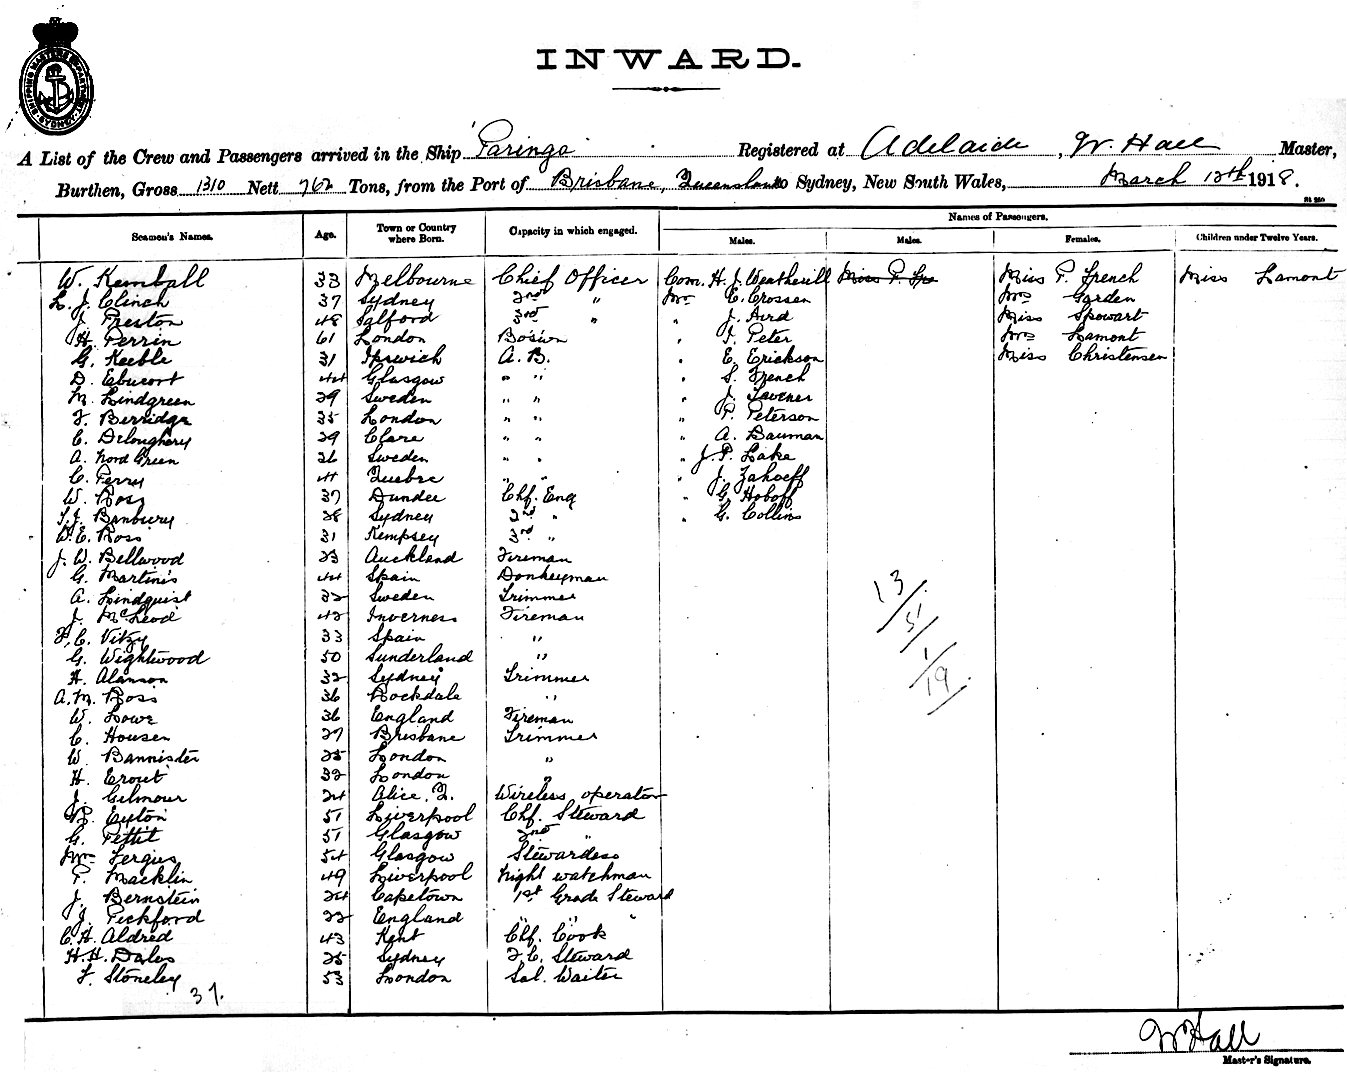 SHIPPING MASTERS DEPARTMENT SYDNEY
INWARD.
A List of the Crew and Passengers arrived in the Ship "Paringa" Registered at Adelaide, W. Hall Master,
Burthen, Gross 1310 Nett 762 Tons, from the Port of Brisbane, Queensland to Sydney, New South Wales, March 13th 1918.
Names of Passengers.
Seamen's Names. Age. Town or Country where Born. Capacity in which engaged. Males. Males. Females. Children under Twelve Years.
W. Kemball 33 Melbourne Chief Officer Com. H. J. Weatherill Miss P. Miss F. French Miss Lamont
L. J. Clinch 37 Sydney 2nd " Mr E. Crossen Mrs Garden
J. Preston 48 Salford 3rd " " J. Aird Miss Spowart
H. Perrin 61 London Bos'un " I. Peter Mrs Lamont
G. Keeble 31 Ipswich A. B. " E. Erickson Miss Christensen
D. 44 Glasgow " " " S. French
M. Lindgreen 29 Sweden " " " J. Tavener
F. Berridge 35 London " " " P. Peterson
C. Deloughery 29 Clare " " " A. Bauman
A. Nord Green 26 Sweden " " " J. P. Lake
C. Perry 41 Quebec " " " J. Zahoeff
W. Ross 37 Dundee Chf. Eng " G. Hoboff
Banbury 28 Sydney 2nd " " G. Collins
W. C. Ross 31 Kempsey 3rd "
J. W. Bellwood 23 Auckland Fireman
G. Martinis 44 Spain Donkeyman
A. Lindquist 32 Sweden Trimmer
J. McLeod 42 Inverness Fireman
F. C. Vitzy 33 Spain "
G. Wightwood 50 Sunderland "
H. Alanson 32 Sydney Trimmer
A. M. Ross 36 Rockdale "
W. Lowe 36 England Fireman
C. Housen 27 Brisbane Trimmer
W. Bannister 25 London "
H. Crout 32 London "
J. Gilmour 24 Alice. Wireless operator
Eyton 51 Liverpool Chf. Steward
G. Pettit 51 Glasgow 2nd "
Mrs Fergus 54 Glasgow Stewardess
P. Macklin 49 Liverpool Night watchman
J. Bernstein 24 Capetown 1st Grade Steward
J. Peckford 22 England " " "
C. H. Aldred 43 Kent Chf. Cook
H. H. Dales 25 Sydney F. C. Steward
F. Stoneley 53 London Sal. Waiter
37.
13/
5/
1/
19.
W Hall
Master's Signature.